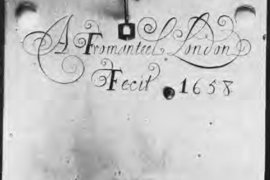 A Fromanteel London
Fecit 1658